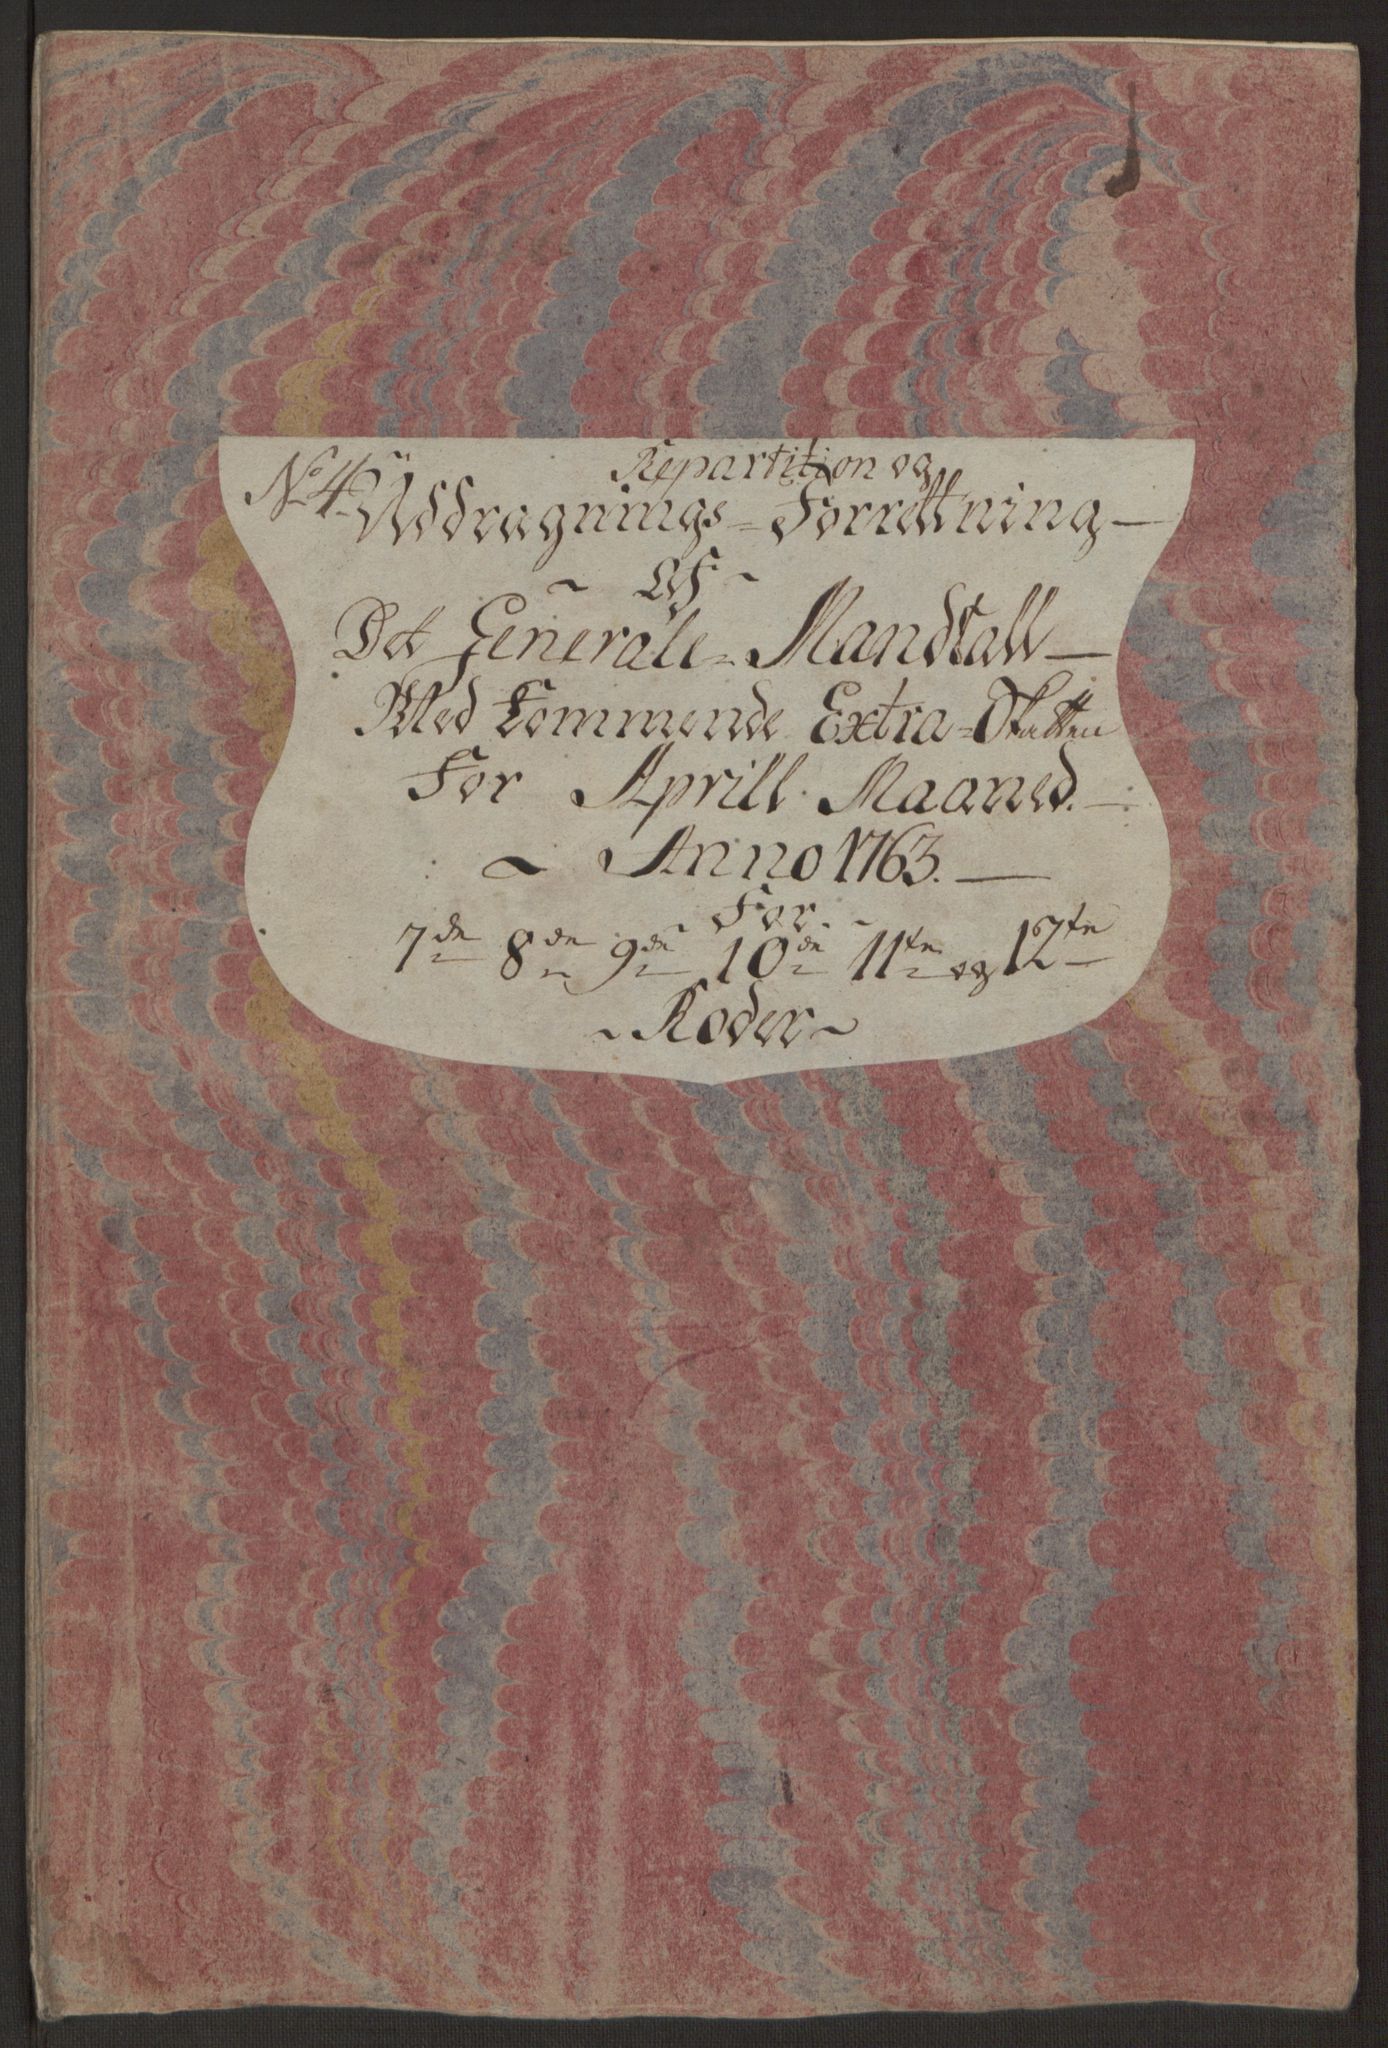 Repartition og
No 4. Uddragnings-Forrettning
Af
Det Generale-Mandtall
Med Kommende Extra-Skatten
For Aprill Maaned.
Anno 1763.
For
7de 8de 9de 10de 11te og 12te
Roder